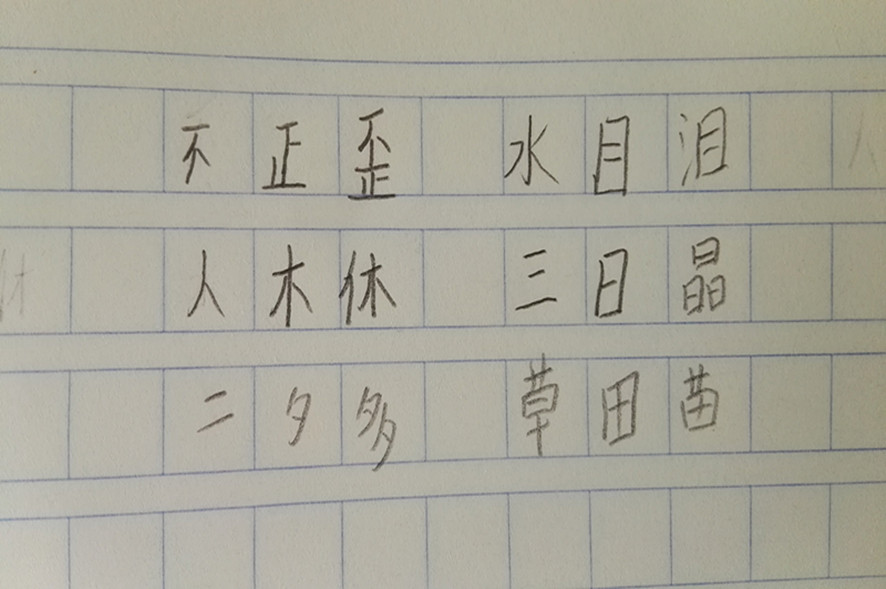 不正歪 水目泪
人木休 三日晶
二夕多 草田苗